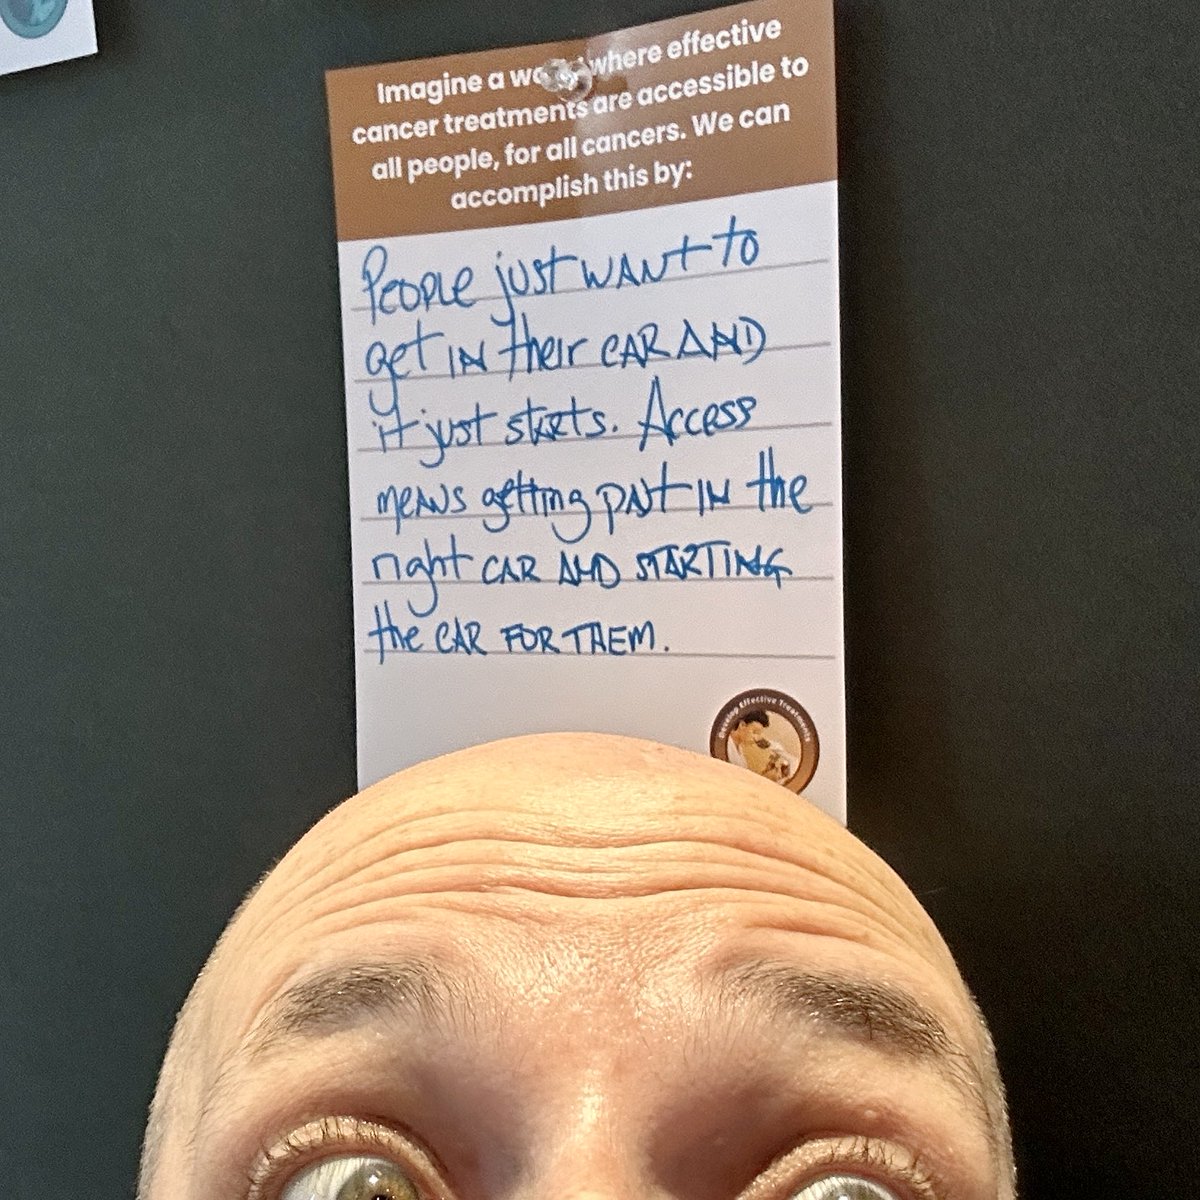 Imagine a world where effective
cancer treatments are accessible to
all people, for all cancers. We can
accomplish this by:
People just WANT to
get IN their CAR AND
it just starts. Access
MEANS getting put IN the
right CAR AND STARTING
the CAR FOR THEM.
Develop Effective Treatments